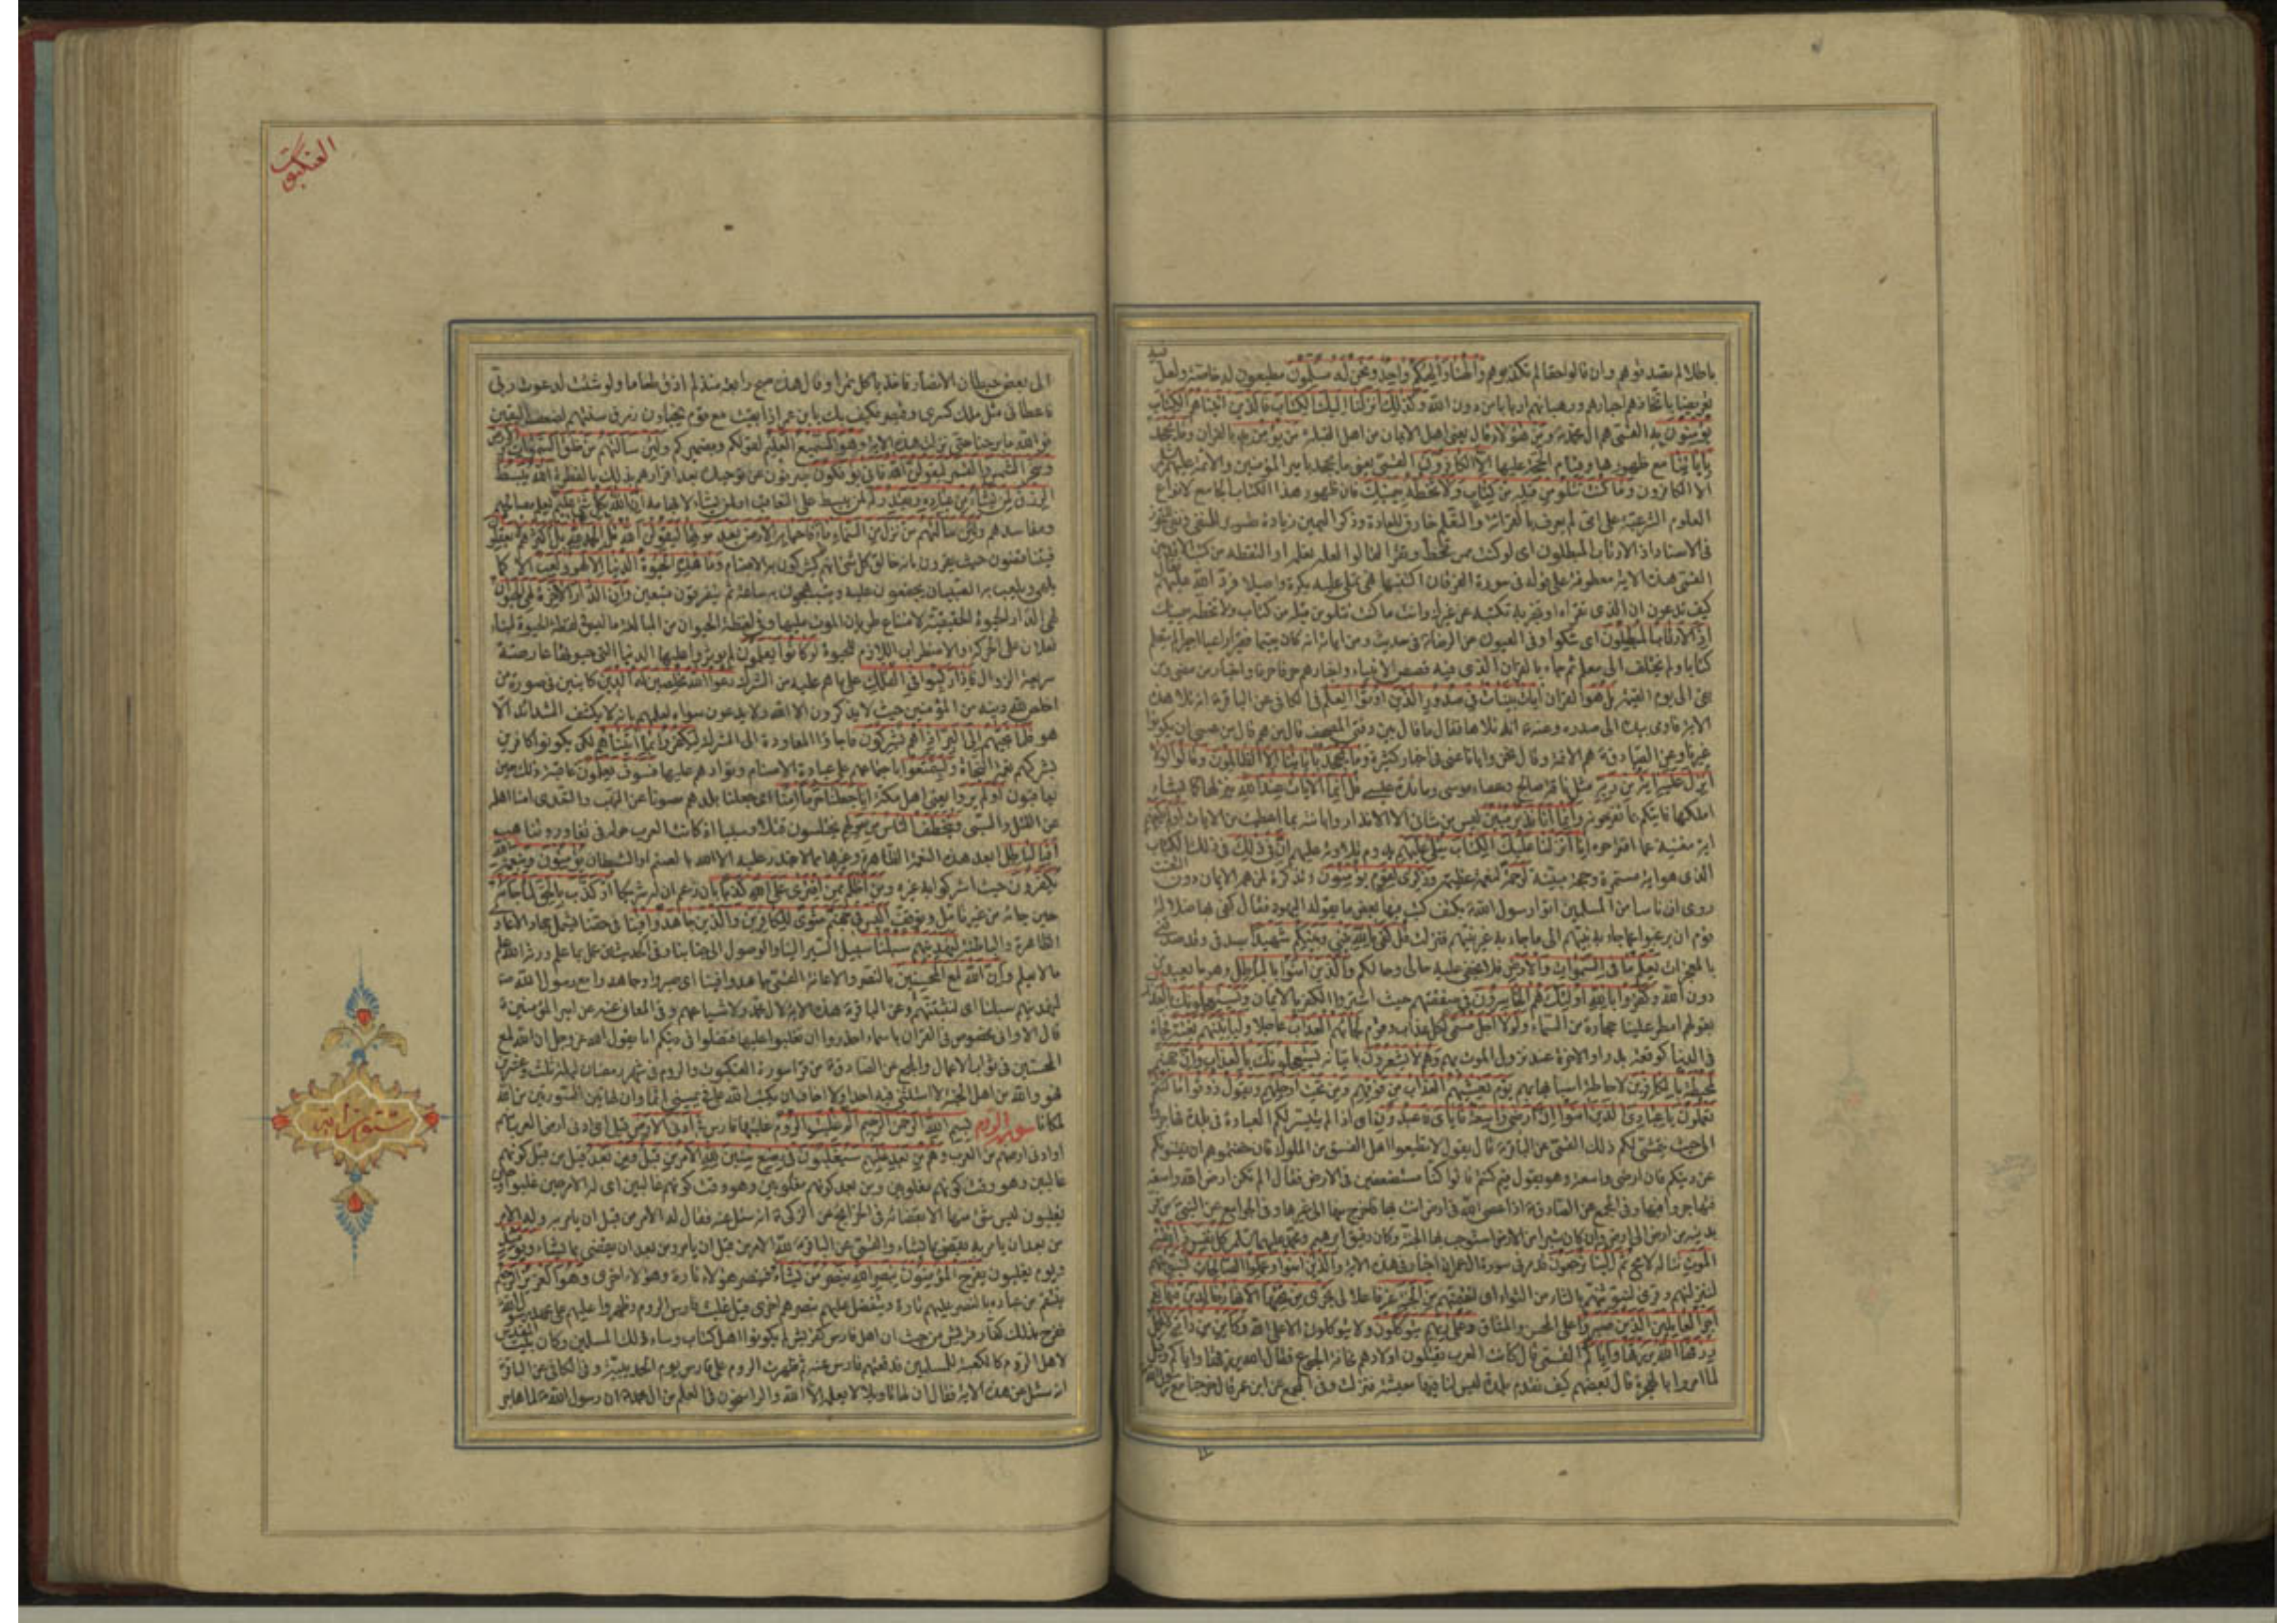 باطلا لم تصدقوهم وان قالوا حقا لم تكذبوهم وإلهنا وإلهكم واحد ونحن له مسلمون مطيعون له خاصة ولعل فيه
تعريضا باتخاذهم احبارهم ورهبانهم اربابا من دون الله وكذلك انزلنا اليك الكتاب فالذين اتيناهم الكتاب
يؤمنون به القمي هم ال محمد ومن هؤلاء قال يعني اهل الايمان من اهل القبلة من يؤمن به بالقران وما يجحد
باياتنا مع ظهورها وقيام الحجة عليها الا الكافرون القمي يعني ما يجحد بامير المؤمنين والائمة عليهم السلام
الا الكافرون وما كنت تتلو من قبله من كتاب ولا تخطه بيمينك فان ظهور هذا الكتاب الجامع لانواع
العلوم الشرعية على امي لم يعرف بالقرائة والتعلم خارق للعادة وذكر اليمين زيادة تصوير للمنفي ونفي للتجوز
في الاسناد اذا لارتاب المبطلون اى لو كنت ممن تخط وتقرا لقالوا لعله تعلمه او التقطه من كتب الاقدمين
القمي هذه الاية معطوفة على قوله في سورة الفرقان اكتتبها فهي تملى عليه بكرة واصيلا فرد الله عليهم
كيف تدعون ان الذى تقراه او تخبر به تكتبه عن غيرك وانت ما كنت تتلو من قبله من كتاب ولا تخطه بيمينك
اذا لارتاب المبطلون اى شكوا وفي العيون عن الرضا في حديث ومن اياته انه كان يتيما فقيرا راعيا اجيرا لم يتعلم
كتابا ولم يختلف الى معلم ثم جاء بالقران الذى فيه قصص الانبياء واخبارهم حرفا حرفا واخبار من مضى ومن
بقي الى يوم القيمة بل هو القران ايات بينات في صدور الذين اوتوا العلم في الكافي عن الباقر انه تلا هذه
الاية فاومى بيده الى صدره وعنه انه تلاها فقال ما قال بين دفتي المصحف قال من هم قال من عسى ان يكونوا
غيرنا وعن الصادق هم الائمة وقال نحن وايانا عنى في اخبار كثيرة وما يجحد باياتنا الا الظالمون وقالوا لولا
انزل عليه اية من ربه مثل ناقة صالح وعصاء موسى ومائدة عيسى قل انما الايات عند الله ينزلها كما يشاء لست
املكها فاتيكم بما تقترحونه وانما انا نذير مبين ليس من شاني الا الانذار وابانته بما اعطيت من الايات اولم يكفهم
اية مغنية عما اقترحوه انا انزلنا عليك الكتاب يتلى عليهم يدوم تلاوته عليهم ان في ذلك في ذلك الكتاب
الذى هو اية مستمرة وحجة مبينة لرحمة لنعمة عظيمة وذكرى لقوم يؤمنون وتذكرة لمن همه الايمان دون التعنت
روى ان ناسا من المسلمين اتوا رسول الله بكتف كتب فيها بعض ما يقوله اليهود فقال كفى بها ضلالة
قوم ان يرغبوا عما جاء به نبيهم الى ما جاء به غير نبيهم فنزلت قل كفى بالله بيني وبينكم شهيدا بصدقي وقد صدقني
بالمعجزات يعلم ما في السموات والارض فلا يخفى عليه حالى وحالكم والذين امنوا بالباطل وهو ما يعبد من
دون الله وكفروا بالله اولئك هم الخاسرون في صفقتهم حيث اشتروا الكفر بالايمان ويستعجلونك بالعذاب
بقولهم امطر علينا حجارة من السماء ولولا اجل مسمى لكل عذاب وقوم لجاءهم العذاب عاجلا ولياتينهم بغتة فجاة
في الدنيا كوقعة بدر او الاخرة عند نزول الموت بهم وهم لا يشعرون باتيانه يستعجلونك بالعذاب وان جهنم
لمحيطة بالكافرين لاحاطة اسبابها بهم يوم يغشيهم العذاب من فوقهم ومن تحت ارجلهم ويقول ذوقوا ما كنتم
تعملون يا عبادى الذين امنوا ان ارضي واسعة فاياى فاعبدون اى اذا لم يتيسر لكم العبادة في بلدة فهاجروا
الى حيث يتمشى لكم ذلك القمي عن الباقر قال يقول لا تطيعوا اهل الفسق من الملوك فان خفتموهم ان يفتنوكم
عن دينكم فان ارضي واسعة وهو يقول فيم كنتم قالوا كنا مستضعفين في الارض فقال الم تكن ارض الله واسعة
فتهاجروا فيها وفي المجمع عن الصادق اذا عصي الله في ارض انت بها فاخرج منها الى غيرها وفي الجوامع عن النبي من فر
بدينه من ارض الى ارض وان كان شبرا من الارض استوجب بها الجنة وكان رفيق ابرهيم ومحمد عليهما السلام كل نفس ذائقة
الموت تناله لا محالة ثم الينا ترجعون قد مر في سورة ال عمران اخبار في هذه الاية والذين امنوا وعملوا الصالحات لنبوئنهم
لننزلنهم وقرئ لنثوينهم بالثاء من الثواء اى لنقيمنهم من الجنة غرفا علالى تجرى من تحتها الانهار خالدين فيها نعم
اجر العاملين الذين صبروا على المحن والمشاق وعلى ربهم يتوكلون ولا يتوكلون الا على الله وكاين من دابة لا تحمل
رزقها الله يرزقها واياكم القمي قال كانت العرب يقتلون اولادهم مخافة الجوع فقال الله يرزقها واياكم وقيل
لما امروا بالهجرة قال بعضهم كيف نقدم بلدة ليس لنا فيها معيشة فنزلت وفي المجمع عن ابن عمر قال خرجنا مع رسول الله
العنكبوت
الى بعض حيطان الانصار فاخذ ياكل تمرا وقال هذه صبح رابعة منذ لم اذق طعاما ولو شئت لدعوت ربي
فاعطاني مثل ملك كسرى وقيصر فكيف بك يا بن عمر اذا بقيت مع قوم يخباون رزق سنتهم لضعف اليقين
فوالله ما برحنا حتى نزلت هذه الاية وهو السميع العليم لقولكم وبضميركم ولئن سالتهم من خلق السموات والارض
وسخر الشمس والقمر ليقولن الله فانى يؤفكون يصرفون عن توحيده بعد اقرارهم بذلك بالفطرة الله يبسط
الرزق لمن يشاء من عباده ويقدر له لمن يبسط على التعاقب او لمن يشاء لابهامه ان الله بكل شئ عليم يعلم مصالحهم
ومفاسدهم ولئن سالتهم من نزل من السماء ماء فاحيا به الارض بعد موتها ليقولن الله قل الحمد لله بل اكثرهم لا يعقلون
فيتناقضون حيث يقرون بانه خالق كل شئ ثم انهم يشركون به الاصنام وما هذه الحيوة الدنيا الا لهو ولعب الا كما
يلهى ويلعب به الصبيان يجتمعون عليه ويبتهجون به ساعة ثم يتفرقون متعبين وان الدار الاخرة لهي الحيوان
لهي الدار الحيوة الحقيقية لامتناع طريان الموت عليها وفي لفظة الحيوان من المبالغة ما ليس في لفظة الحيوة لبناء
فعلان على الحركة والاضطراب اللازم للحيوة لو كانوا يعلمون لم يؤثروا عليها الدنيا التي حيوتها عارضة
سريعة الزوال فاذا ركبوا في الفلك على ما هم عليه من الشرك دعوا الله مخلصين له الدين كاينين في صورة من
اخلص لله دينه من المؤمنين حيث لا يذكرون الا الله ولا يدعون سواه لعلمهم بانه لا يكشف الشدائد الا
هو فلما نجيهم الى البر اذا هم يشركون فاجاؤا المعاودة الى الشرك ليكفروا بما اتيناهم لكي يكونوا كافرين
بشركهم نعمة النجاة وليتمتعوا باجتماعهم على عبادة الاصنام وتوادهم عليها فسوف يعلمون عاقبة ذلك حين
يعاقبون اولم يروا يعني اهل مكة انا جعلنا حرما امنا اى جعلنا بلدهم مصونا عن النهب والتعدى امنا اهله
عن القتل والسبي ويتخطف الناس من حولهم يختلسون قتلا وسبيا اذ كانت العرب حوله في تغاور وتناهب
افبالباطل ابعد هذه النعمة الظاهرة وغيرها مما لا يقدر عليه الا الله بالصنم او الشيطان يؤمنون وبنعمة الله
يكفرون حيث اشركوا به غيره ومن اظلم ممن افترى على الله كذبا بان زعم ان له شريكا او كذب بالحق لما جاءه
حين جاءه من غير تامل وتوقف اليس في جهنم مثوى للكافرين والذين جاهدوا فينا في حقنا يشمل جهاد الاعادى
الظاهرة والباطنة لنهدينهم سبلنا سبل السير الينا والوصول الى جنابنا وفي الحديث من عمل بما علم ورثه الله علم
ما لا يعلم وان الله لمع المحسنين بالنصر والاعانة القمي جاهدوا فينا اى صبروا وجاهدوا مع رسول الله
لنهدينهم سبلنا اى لنثبتنهم وعن الباقر هذه الاية لال محمد ولاشياعهم وفي المعاني عنه عن امير المؤمنين
قال الا واني مخصوص في القران باسماء احذروا ان تغلبوا عليها فتضلوا في دينكم انا يقول الله عز وجل ان الله لمع
المحسنين في ثواب الاعمال والمجمع عن الصادق من قرا سورة العنكبوت والروم في شهر رمضان ليلة ثلث وعشرين
فهو والله من اهل الجنة لا استثني فيه احدا ولا اخاف ان يكتب الله علي في يميني اثما وان لهاتين السورتين من الله
لمكانا سورة الروم بسم الله الرحمن الرحيم الم غلبت الروم غلبتها فارس في ادنى الارض قيل اى ادنى ارض العرب منهم
او ادنى ارضهم من العرب وهم من بعد غلبهم سيغلبون في بضع سنين لله الامر من قبل ومن بعد قيل من قبل كونهم
غالبين وهو وقت كونهم مغلوبين ومن بعد كونهم مغلوبين وهو وقت كونهم غالبين اى له الامر حين غلبوا وحين
يغلبون ليس شئ منها الا بقضائه في الخرايج عن الزكي انه سئل عنه فقال له الامر من قبل ان يامر به وله الامر
من بعد ان يامر به يقضي بما يشاء والقمي عن الباقر لله الامر من قبل ان يامر ومن بعد ان يقضي بما يشاء ويومئذ
ويوم يغلبون يفرح المؤمنون بنصر الله ينصر من يشاء فينصر هؤلاء تارة وهؤلاء اخرى وهو العزيز الرحيم
ينتقم من عباده بالنصر عليهم تارة ويتفضل عليهم بنصرهم اخرى قيل غلبت فارس الروم وظهروا عليهم على عهد رسول الله
ففرح بذلك كفار قريش من حيث ان اهل فارس لم يكونوا اهل كتاب وساء ذلك المسلمين وكان بيت المقدس
لاهل الروم كالكعبة للمسلمين فدفعتهم فارس عنه ثم ظهرت الروم على فارس يوم الحديبية وفي الكافي عن الباقر
انه سئل عن هذه الاية فقال ان لها تاويلا لا يعلمه الا الله والراسخون في العلم من ال محمد ان رسول الله لما هاجر